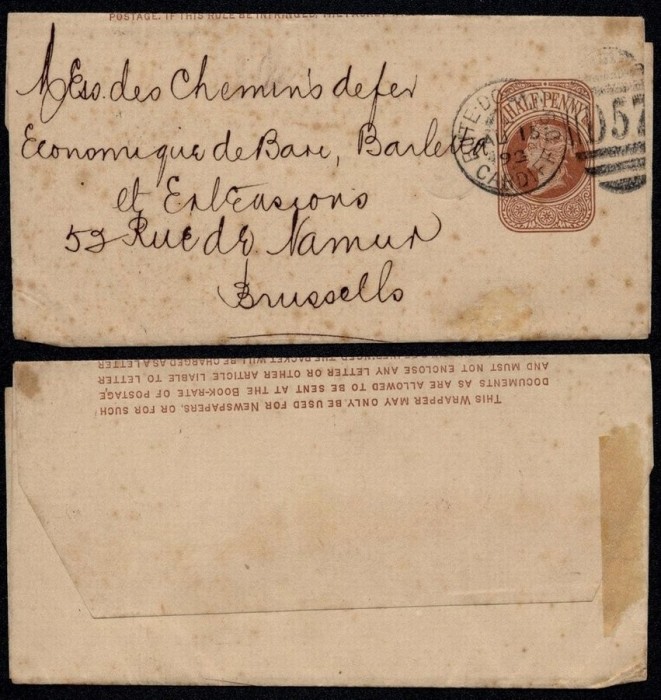 POSTAGE. IF THIS RULE BE INFRINGED, THE PACKET
Mess. des Chemins de fer
Economique de Bari, Barletta
et Extensions
52 Rue de Namur
Brussells
HALF PENNY
BUTE-DO
15
92
CARDIFF
057
THIS WRAPPER MAY ONLY BE USED FOR NEWSPAPERS, OR FOR SUCH
DOCUMENTS AS ARE ALLOWED TO BE SENT AT THE BOOK-RATE OF POSTAGE
AND MUST NOT ENCLOSE ANY LETTER OR OTHER ARTICLE LIABLE TO LETTER
INFRINGED, THE PACKET WILL BE CHARGED AS A LETTER